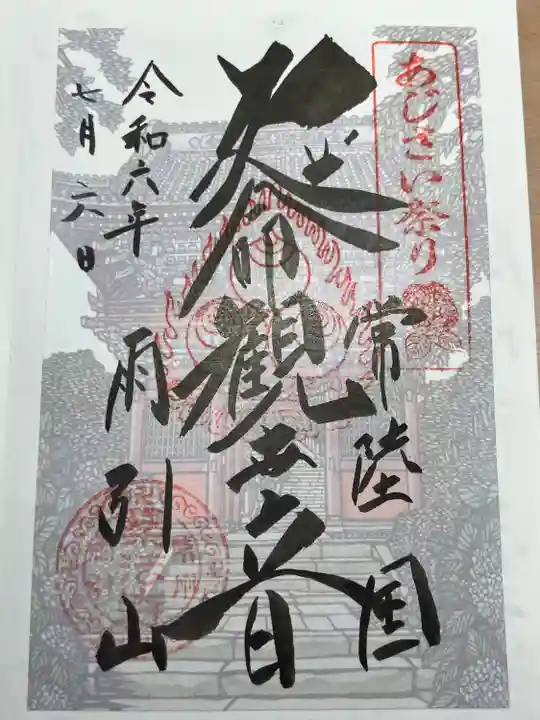 あじさい祭り
常陸国
延命觀世音
雨引山
令和六年
七月六日